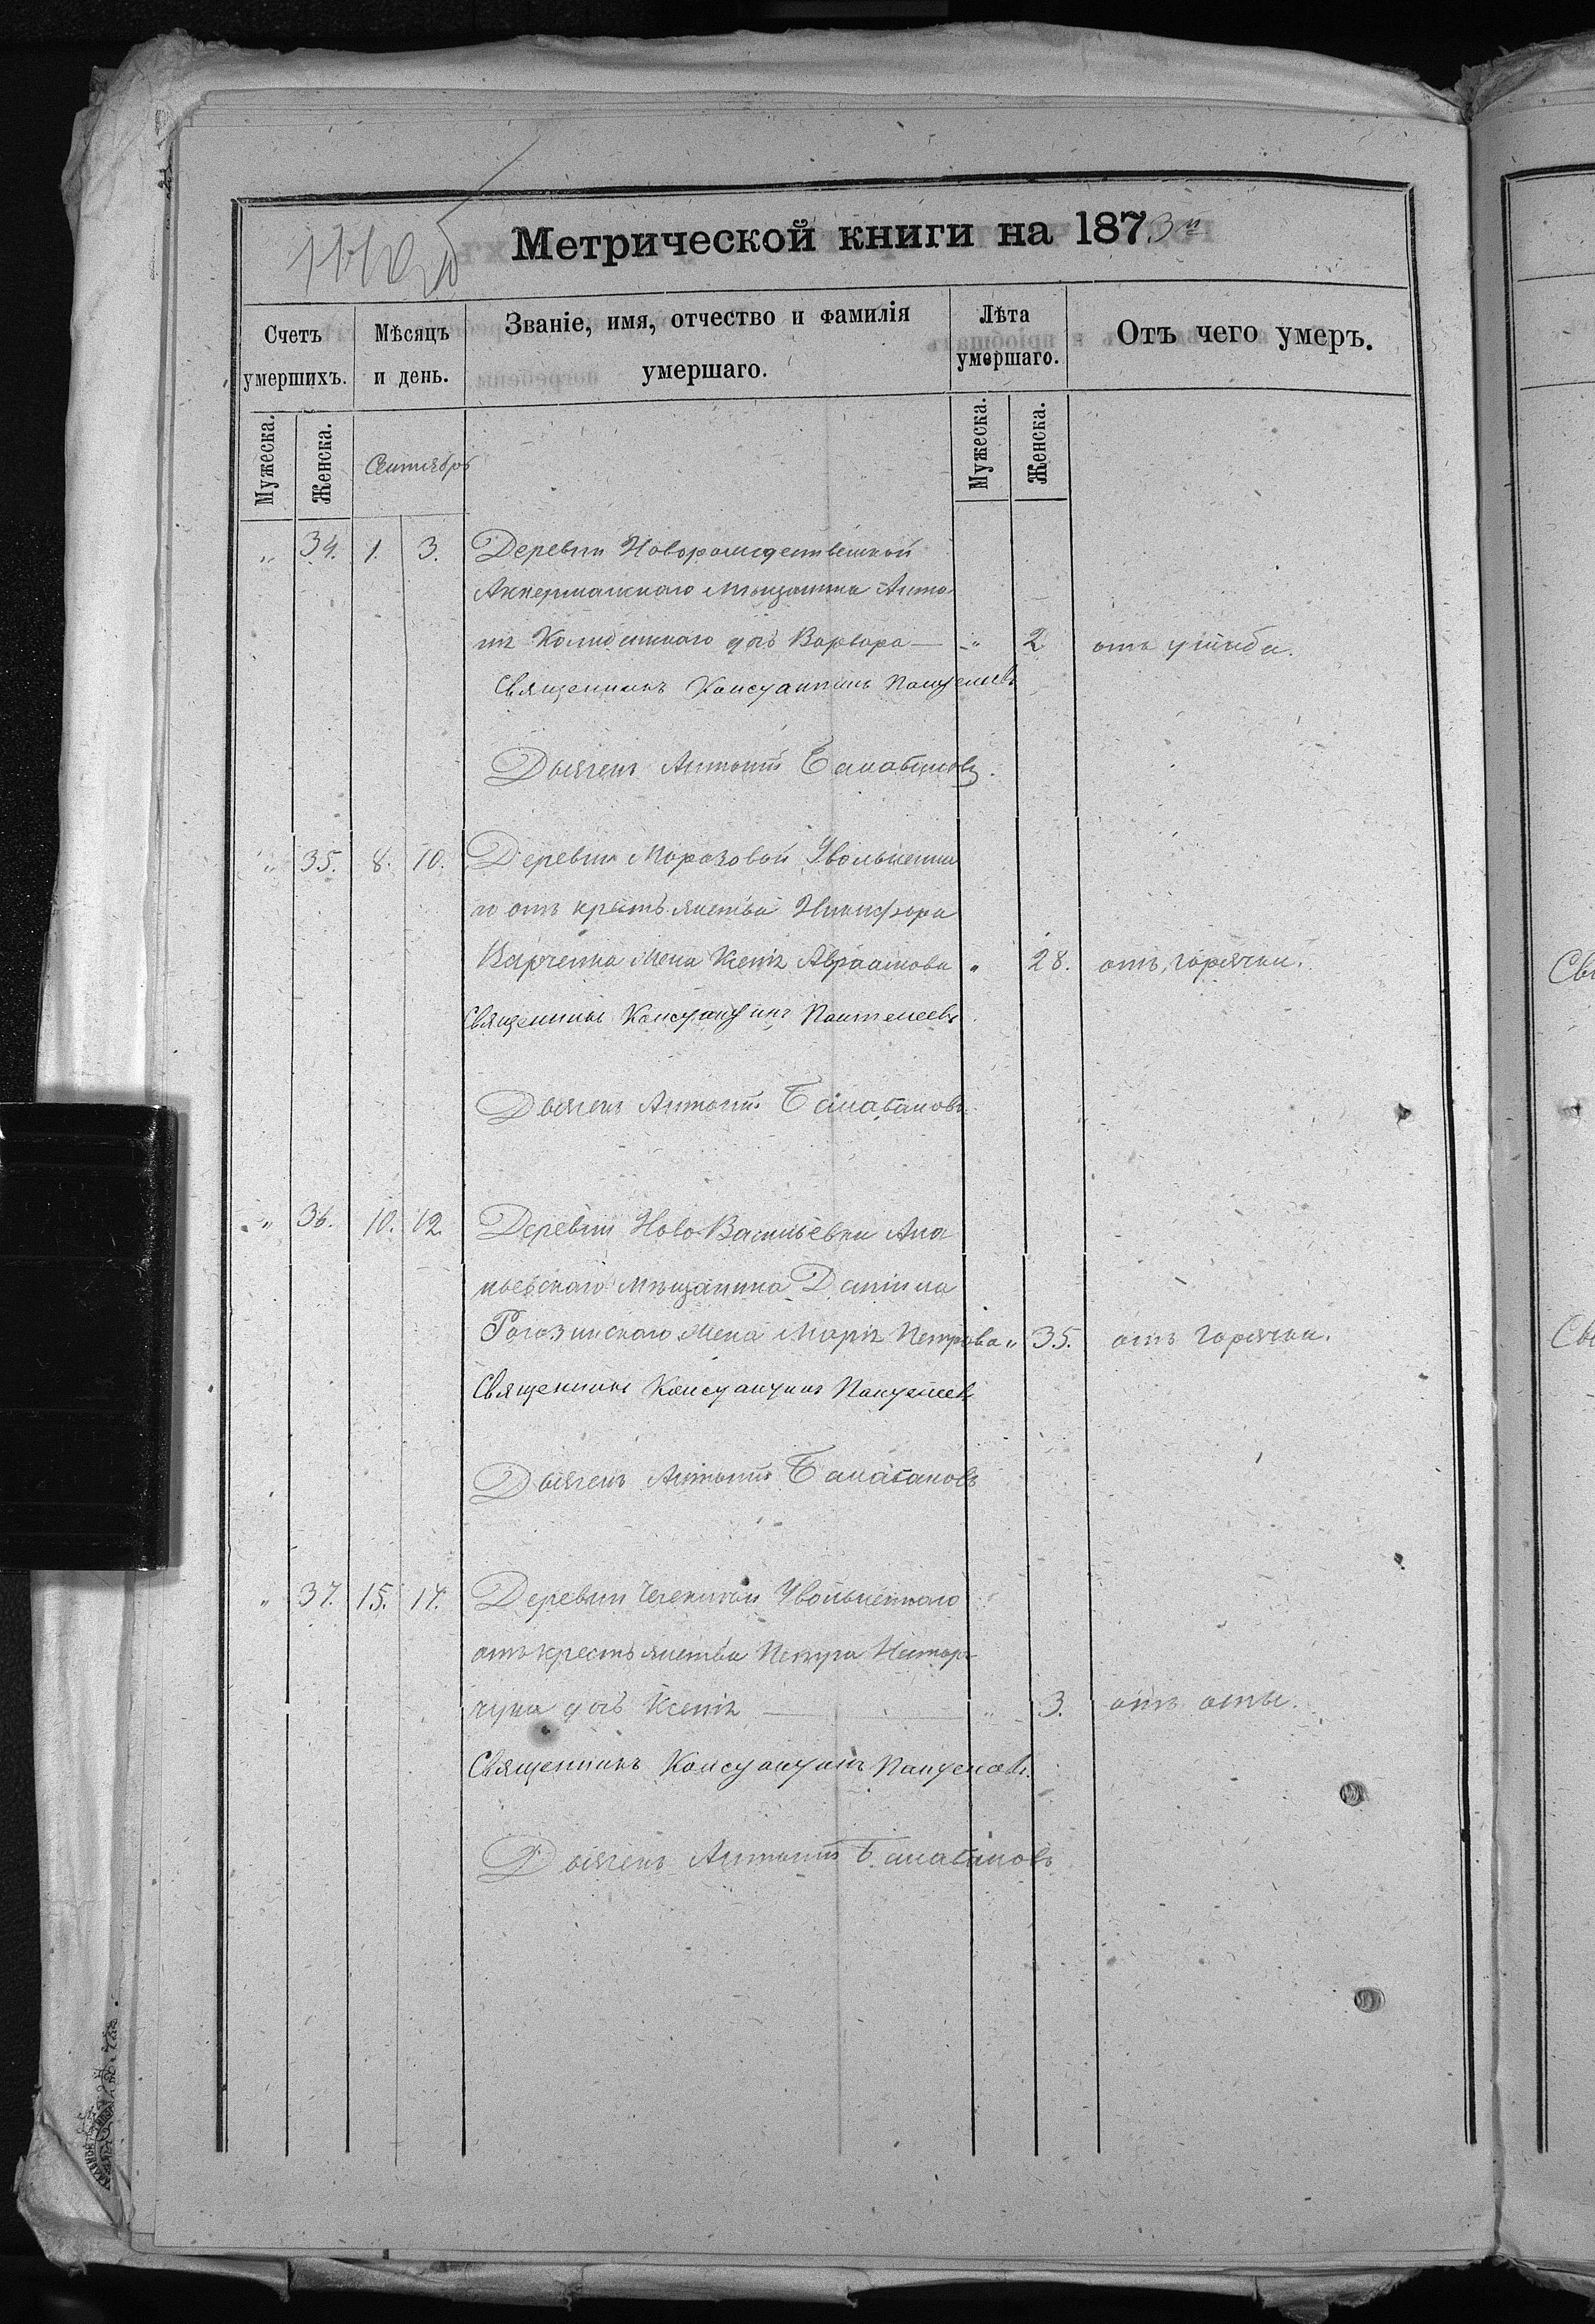 Метрической книги на 1873й
Счетъ умершихъ. Мѣсяцъ и день. Званіе, имя, отчество и фамилія умершаго. Лѣта умершаго. Отъ чего умеръ.
Мужеска. Женска. Сентябрь Мужеска. Женска.
„ 34. 1. 3. Деревни Новорождественской
Аккерманскаго Мѣщанина Анто
на дочь Варвара — „ 2 отъ ушиба.
Священникъ Константинъ Пантелеевъ
Дьячекъ Антоній Балабановъ.
„ 35. 8. 10. Деревни Морозовой Увольненна
го отъ крестьянства Никифора
жена Ксенія Авраамова „ 28. отъ горячки.
Священникъ Константинъ Пантелеевъ
Дьячекъ Антоній Балабановъ.
„ 36. 10. 12. Деревни Ново-Васильевки Ана
ньевскаго Мѣщанина Даніила
Рогозинскаго жена Марія Петрова „ 35. отъ горячки.
Священникъ Константинъ Пантелеевъ
Дьячекъ Антоній Балабановъ
„ 37. 15. 17. Деревни Увольненнаго
отъ крестьянства Петра Нестер
чука дочь Ксенія — „ 3. отъ оспы.
Священникъ Константинъ Пантелеевъ.
Дьячекъ Антоній Балабановъ